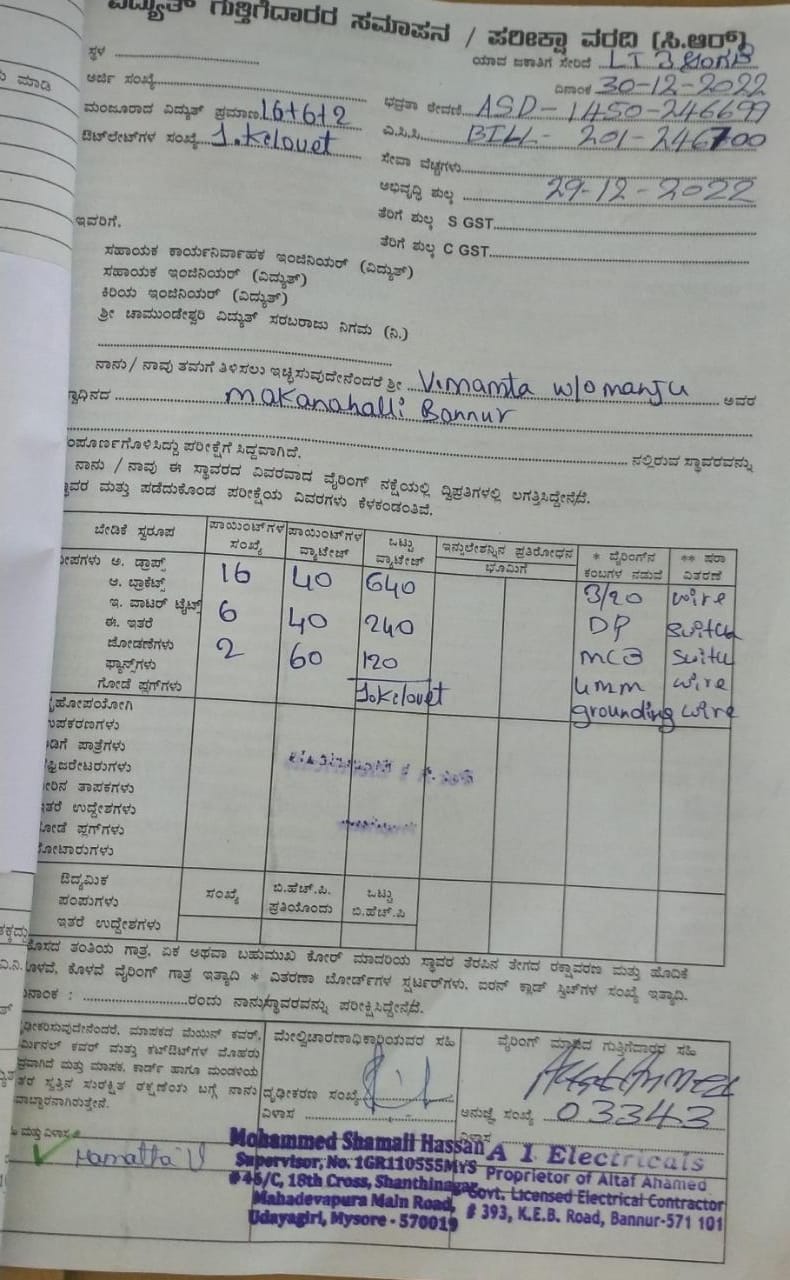 ವಿದ್ಯುತ್ ಗುತ್ತಿಗೆದಾರರ ಸಮಾಪನ / ಪರೀಕ್ಷಾ ವರದಿ (ಸಿ.ಆರ್)
ಸ್ಥಳ
ಯಾವ ಜಕಾತಿಗೆ ಸೇರಿದೆ LT 3
ಅರ್ಜಿ ಸಂಖ್ಯೆ
ದಿನಾಂಕ 30-12-2022
ಮಂಜೂರಾದ ವಿದ್ಯುತ್ ಪ್ರಮಾಣ 16+6+2
ಭದ್ರತಾ ಠೇವಣಿ ASD-1450-246699
ಔಟ್‌ಲೇಟ್‌ಗಳ ಸಂಖ್ಯೆ 1.kelouet
ಎ.ಸಿ.ಸಿ. BILL- 201-246700
ಸೇವಾ ವೆಚ್ಚಗಳು
ಅಭಿವೃದ್ಧಿ ಶುಲ್ಕ 29-12-2022
ಇವರಿಗೆ.
ತೆರಿಗೆ ಶುಲ್ಕ S GST
ತೆರಿಗೆ ಶುಲ್ಕ C GST
ಸಹಾಯಕ ಕಾರ್ಯನಿರ್ವಾಹಕ ಇಂಜಿನಿಯರ್ (ವಿದ್ಯುತ್)
ಸಹಾಯಕ ಇಂಜಿನಿಯರ್ (ವಿದ್ಯುತ್)
ಕಿರಿಯ ಇಂಜಿನಿಯರ್ (ವಿದ್ಯುತ್)
ಶ್ರೀ ಚಾಮುಂಡೇಶ್ವರಿ ವಿದ್ಯುತ್ ಸರಬರಾಜು ನಿಗಮ (ನಿ.)
ನಾನು / ನಾವು ತಮಗೆ ತಿಳಿಸಲು ಇಚ್ಛಿಸುವುದೇನೆಂದರೆ ಶ್ರೀ w/o manju ಅವರ
makanahalli Bannur
ನಲ್ಲಿರುವ ಸ್ಥಾವರವನ್ನು
ಸಂಪೂರ್ಣಗೊಳಿಸಿದ್ದು ಪರೀಕ್ಷೆಗೆ ಸಿದ್ಧವಾಗಿದೆ.
ನಾನು / ನಾವು ಈ ಸ್ಥಾವರದ ವಿವರವಾದ ವೈರಿಂಗ್ ನಕ್ಷೆಯಲ್ಲಿ ದ್ವಿಪ್ರತಿಗಳಲ್ಲಿ ಲಗತ್ತಿಸಿದ್ದೇನೆ/ದೆ.
ಸ್ಥಾವರ ಮತ್ತು ಪಡೆದುಕೊಂಡ ಪರೀಕ್ಷೆಯ ವಿವರಗಳು ಕೆಳಕಂಡಂತಿವೆ.
ಬೇಡಿಕೆ ಸ್ವರೂಪ ಪಾಯಿಂಟ್‌ಗಳ ಸಂಖ್ಯೆ ಪಾಯಿಂಟ್‌ಗಳ ವ್ಯಾಟೇಜ್ ಒಟ್ಟು ವ್ಯಾಟೇಜ್ ಇನ್ಸುಲೇಶನ್ನಿನ ಪ್ರತಿರೋಧನ ಭೂಮಿಗೆ * ವೈರಿಂಗ್‌ನ ಕಂಬಗಳ ನಡುವೆ ** ಷರಾ ವಿತರಣೆ
ದೀಪಗಳು ಅ. ಡ್ರಾಪ್ಸ್ 16 40 640 3/20 wire
ಆ. ಬ್ರಾಕೆಟ್ಸ್
ಇ. ವಾಟರ್ ಟೈಟ್ಸ್ 6 40 240 DP switch
ಈ. ಇತರೆ
ಜೋಡಣೆಗಳು 2 60 120 MCB
ಫ್ಯಾನ್ಸ್‌ಗಳು
ಗೋಡೆ ಪ್ಲಗ್‌ಗಳು 1.kelouet 4mm wire
ಗೃಹೋಪಯೋಗಿ grounding wire
ಉಪಕರಣಗಳು
ಅಡಿಗೆ ಪಾತ್ರೆಗಳು
ರೆಫ್ರಿಜರೇಟರುಗಳು
ನೀರಿನ ತಾಪಕಗಳು
ಇತರೆ ಉದ್ದೇಶಗಳು
ಗೋಡೆ ಪ್ಲಗ್‌ಗಳು
ಮೋಟಾರುಗಳು
ಔದ್ಯಮಿಕ
ಪಂಪುಗಳು ಸಂಖ್ಯೆ ಬಿ.ಹೆಚ್.ಪಿ. ಪ್ರತಿಯೊಂದು ಒಟ್ಟು ಬಿ.ಹೆಚ್.ಪಿ
ಇತರೆ ಉದ್ದೇಶಗಳು
ತಂತಿಯ ಗಾತ್ರ, ಏಕ ಅಥವಾ ಬಹುಮುಖ ಕೋರ್ ಮಾದರಿಯ ಸ್ಥಾವರ ತೆರಪಿನ ತೇಗದ ರಕ್ಷಾವರಣ ಮತ್ತು ಹೊದಿಕೆ
ಕೊಳವೆ ವೈರಿಂಗ್ ಗಾತ್ರ ಇತ್ಯಾದಿ * ವಿತರಣಾ ಬೋರ್ಡ್‌ಗಳ ಸ್ಟರ್ಟರ್‌ಗಳು, ಐರನ್ ಕ್ಲಾಡ್ ಸ್ವಿಚ್‌ಗಳ ಸಂಖ್ಯೆ ಇತ್ಯಾದಿ.
ದಿನಾಂಕ : ರಂದು ನಾನು/ಸ್ಥಾವರವನ್ನು ಪರೀಕ್ಷಿಸಿದ್ದೇನೆ/ದೆ.
ದೃಢೀಕರಿಸುವುದೇನೆಂದರೆ, ಮಾಪಕದ ಮೆಯಿನ್ ಕವರ್,
ಟರ್ಮಿನಲ್ ಕವರ್ ಮತ್ತು ಕಟ್‌ಔಟ್‌ಗಳ ಮೊಹರು
ಭದ್ರವಾಗಿದೆ ಮತ್ತು ಮಾಪಕ, ಕಾರ್ಡ್ ಹಾಗೂ ಮಂಡಳಿಯ
ಇತರ ಸ್ವತ್ತಿನ ಸುರಕ್ಷಿತ ರಕ್ಷಣೆಯ ಬಗ್ಗೆ ನಾನು
ಜವಾಬ್ದಾರನಾಗಿರುತ್ತೇನೆ.
ಮತ್ತು ವಿಳಾಸ
Mamatha V
ಮೇಲ್ವಿಚಾರಣಾಧಿಕಾರಿಯವರ ಸಹಿ
ದೃಢೀಕರಣ ಸಂಖ್ಯೆ
ವಿಳಾಸ
Mohammed Shamali Hassan
Supervisor, No. 1GR110555MYS
# 45/C, 18th Cross, Shanthinagar,
Mahadevapura Main Road,
Udayagiri, Mysore - 570019
ವೈರಿಂಗ್ ಮಾಡಿದ ಗುತ್ತಿಗೆದಾರರ ಸಹಿ
ಅನುಜ್ಞೆ ಸಂಖ್ಯೆ 03343
ವಿಳಾಸ
A I Electricals
Proprietor of Altaf Ahamed
Govt. Licensed Electrical Contractor
# 393, K.E.B. Road, Bannur-571 101